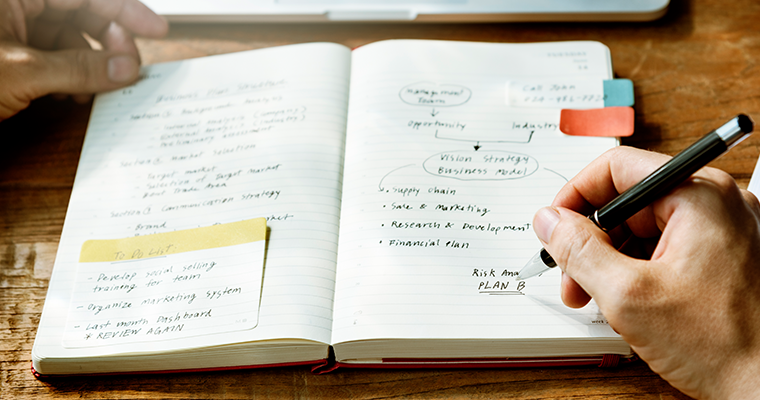 Business Plan Structure
Section ① Background Analysis
- General analysis (company)
- External analysis (Industry)
- Preliminary assessment
Section ② Market Selection
- Target market
- Selection of Target Market
- Trade Area
Section ③ Communication Strategy
- Brand
market
To Do List
- Develop social selling
training for team
- Organize marketing system
- Last month Dashboard
* REVIEW AGAIN
Call John
management
Team
Opportunity Industry
Vision Strategy
Business Model
• Supply chain
• Sale & Marketing
• Research & Development
• Financial plan
Risk Ana
PLAN B